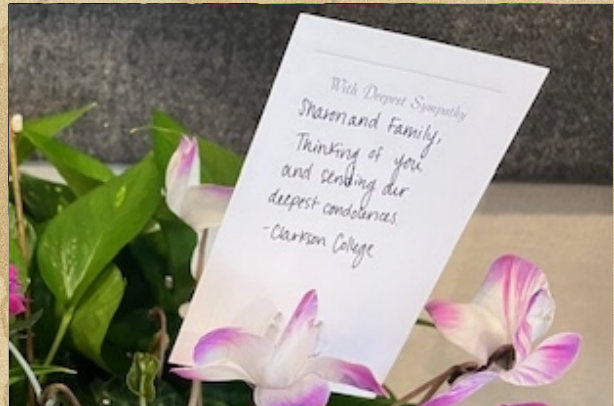 With Deepest Sympathy
Sharon and Family,
Thinking of you
and sending our
deepest condolences.
-Clarkson College